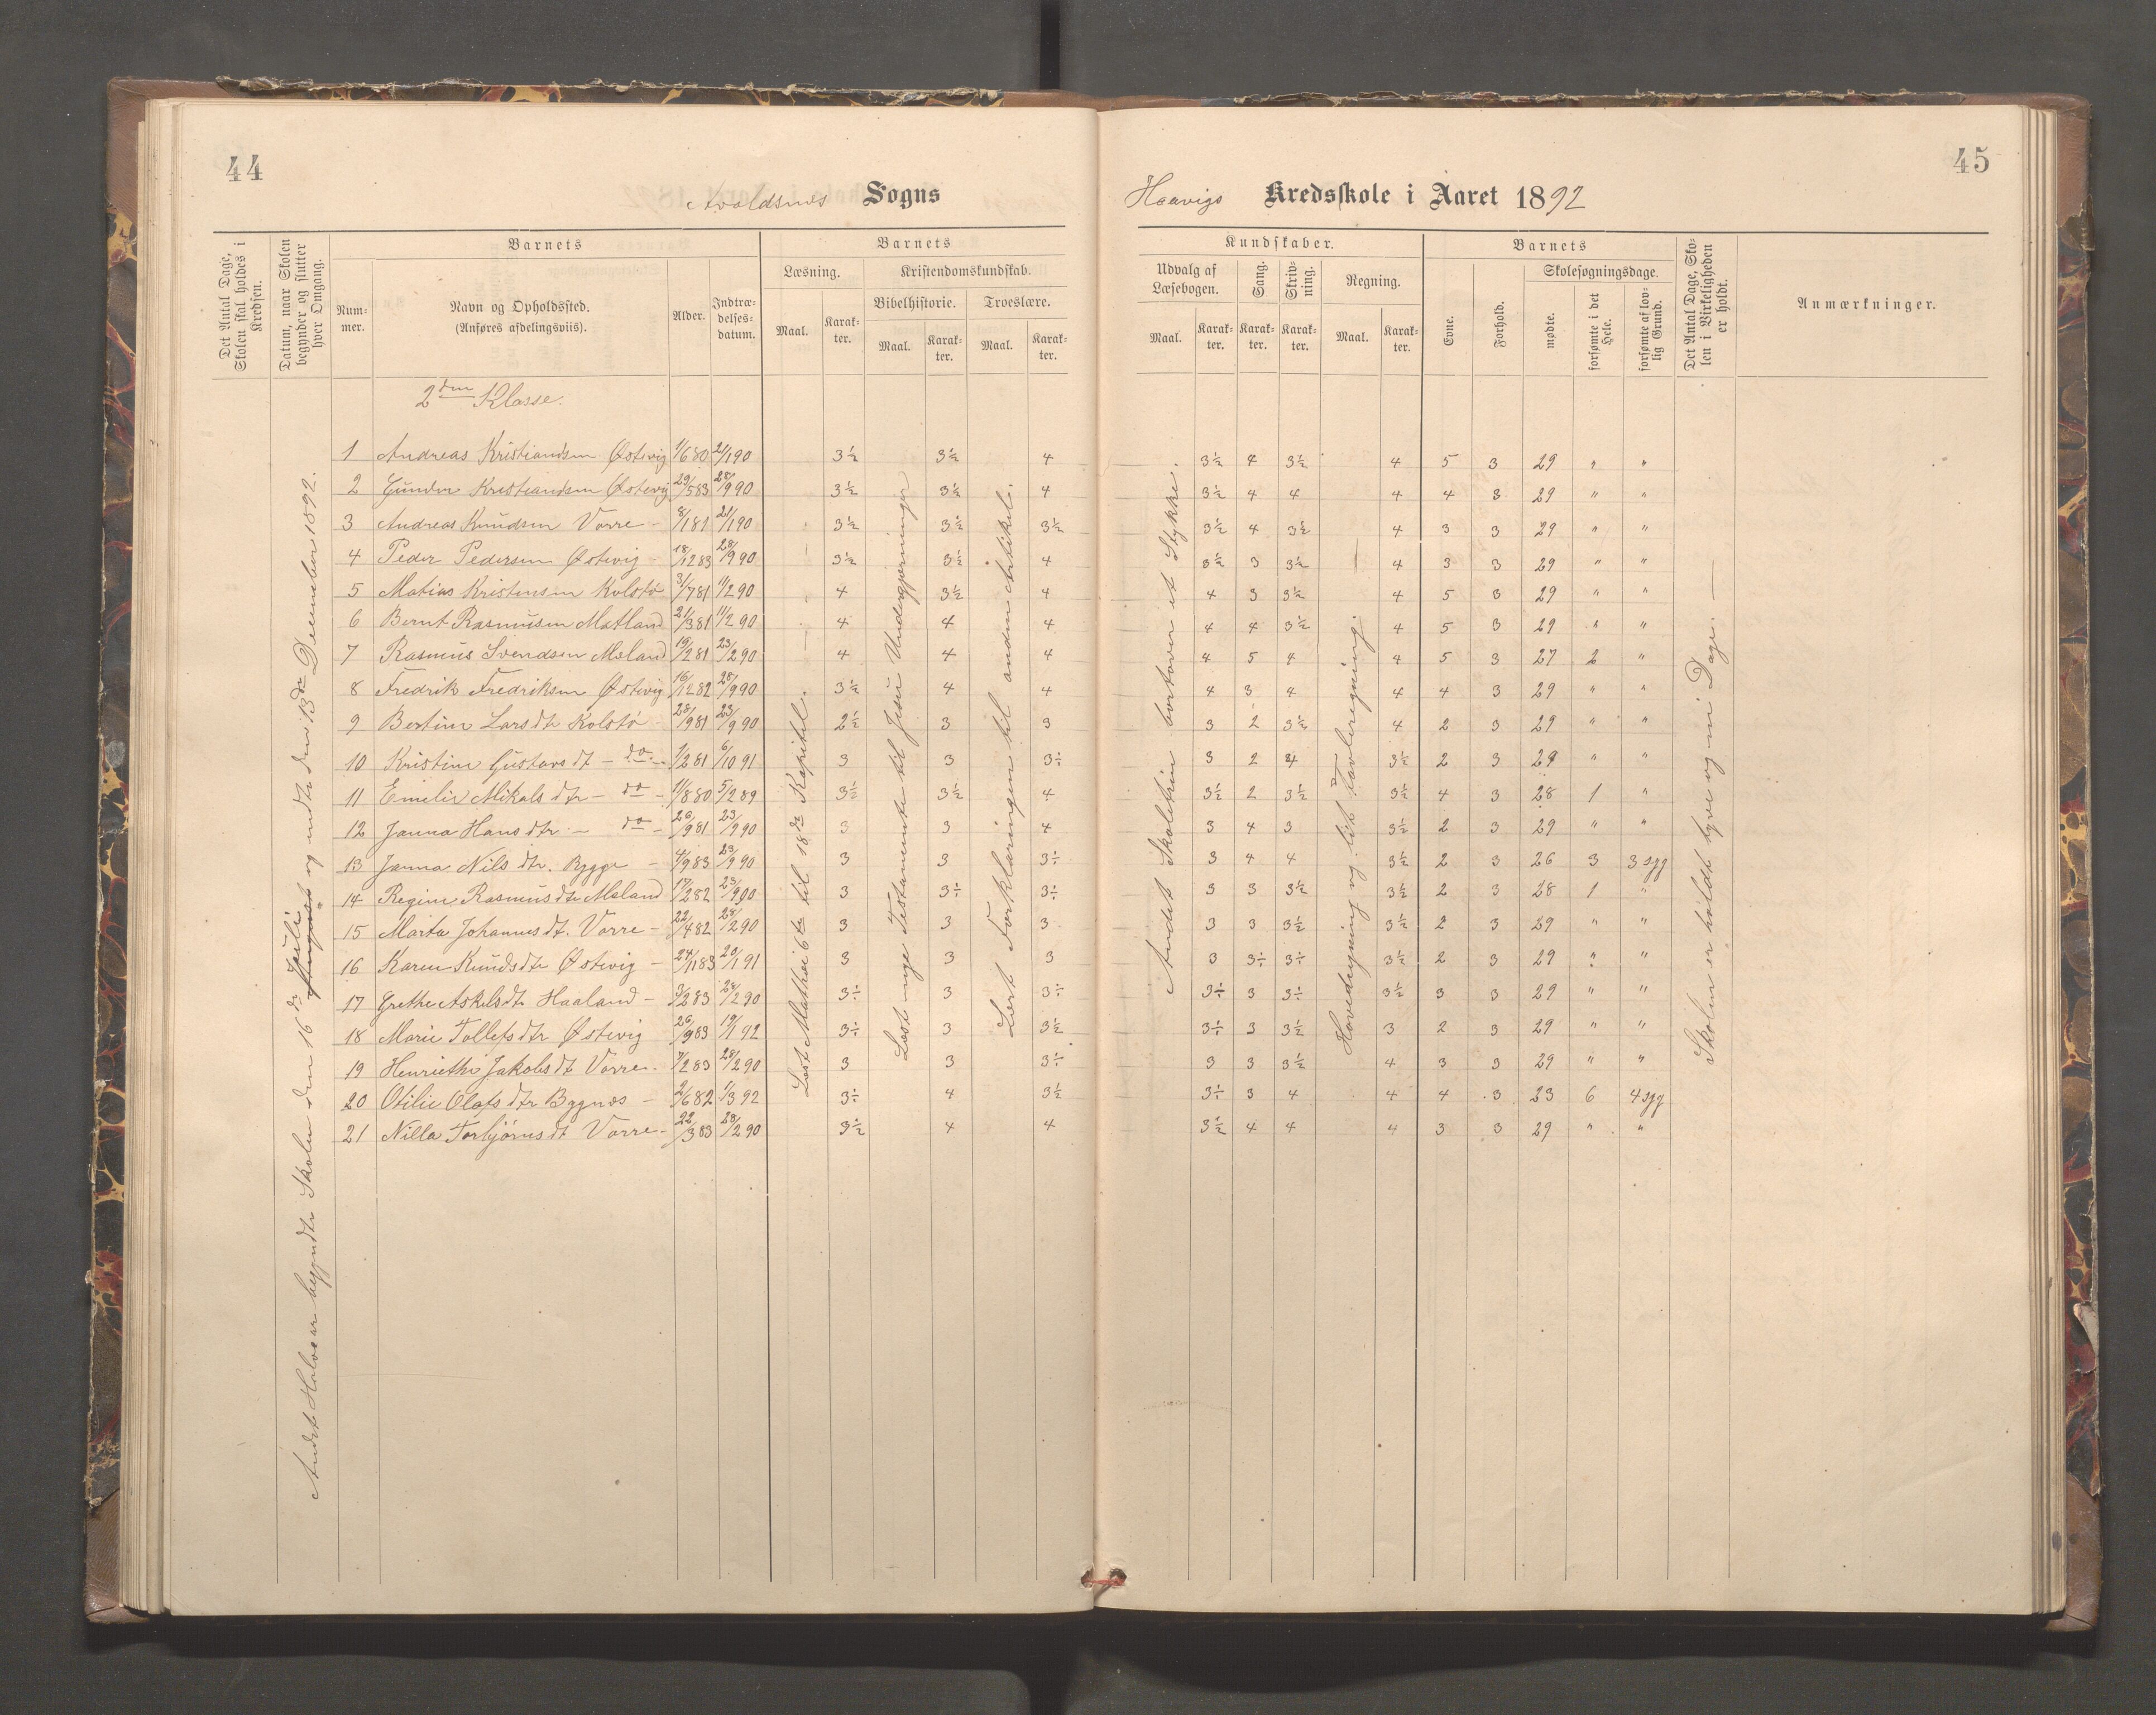 44
Avaldsnes Sogns
Det Antal Dage, Skolen skal holdes i Kredsen.
Datum, naar Skolen begynder og slutter hver Omgang.
Barnets
Num-mer.
Navn og Opholdssted. (Anføres afdelingsviis).
Alder.
Indtræ-delses-datum.
Barnets
Læsning.
Kristendomskundskab.
Bibelhistorie.
Troeslære.
Maal. Karak-ter. Maal. Karak-ter. Maal. Karak-ter.
2den Klasse.
1 Andreas Kristiansen Østevig 1/6 80 21/1 90 3½ 3½ 4
2 Gunder Kristiansen Østevig 29/5 83 28/9 90 3½ 3½ 4
3 Andreas Knudsen Vorre - 8/1 81 21/1 90 3½ 3½ 3½
4 Peder Pedersen Østevig - 18/12 83 28/9 90 3½ 3½ 4
5 Matias Kristensen Kolstø 3/7 81 11/2 90 4 3½ 4
6 Bernt Rasmusen Matland 21/3 81 11/2 90 4 4 4
7 Rasmus Svendsen Meland 19/2 81 23/2 90 4 4 4
8 Fredrik Fredriksen Østevig 16/12 82 28/9 90 3½ 4 4
9 Bertine Larsdtr Kolstø - 28/9 81 23/9 90 2½ 3 3
10 Kristine Gustavsdt - do - 1/2 81 6/10 91 3 3 3÷
11 Emelie Mikalsdtr - do - 11/8 80 5/2 89 3½ 3½ 4
12 Janna Hansdtr. - do - 26/9 81 23/9 90 3 3 4
13 Janna Nilsdtr. Bygge - 4/9 83 23/9 90 3 3 3÷
14 Regine Rasmusdtr Meland 17/2 82 23/9 90 3 3÷ 3÷
15 Marta Johannesdt. Vorre - 22/4 82 28/2 90 3 3 3
16 Karen Knudsdtr Østevig - 24/11 83 20/1 91 3 3 3
17 Grethe Askilsdtr Haaland - 3/2 83 28/2 90 3÷ 3 3÷
18 Marie Tollefsdtr Østevig 26/9 83 19/1 92 3÷ 3 3½
19 Henriette Jakobsdt Vorre. 7/2 83 28/2 90 3 3 3÷
20 Otilie Olafsdtr Bygnes - 2/6 82 1/3 92 3÷ 4 3½
21 Nilla Torbjørnsdt Vorre - 22/3 83 28/2 90 3½ 4 4
Andet Halvaar begyndte Skolen den 16de Juli og endte den 13de December 1892.
Læst Mathæi 6te til 18de Kapitel.
Læst nye Testamente til Jesu Undergjerninger
Lært Forklaringen til anden Artikel.
45
Haavigs Kredsskole i Aaret 1892
Kundskaber.
Udvalg af Læsebogen.
Sang.
Skriv-ning.
Regning.
Maal. Karak-ter. Karak-ter. Karak-ter. Maal. Karak-ter.
Barnets
Evne.
Forhold.
Skolesøgningsdage.
mødte.
forsømte i det Hele.
forsømte af lov-lig Grund.
Det Antal Dage, Sko-len i Virkeligheden er holdt.
Anmærkninger.
3½ 4 3½ 4 5 3 29 " "
3½ 4 4 4 4 3 29 " "
3½ 4 3½ 4 3 3 29 " "
3½ 3 3½ 4 3 3 29 " "
4 3 3½ 4 5 3 29 " "
4 4 3½ 4 5 3 29 " "
4 5 4 4 5 3 27 2 "
4 3 4 4 4 3 29 " "
3 2 3½ 4 2 3 29 " "
3 2 4 3½ 2 3 29 " "
3½ 2 3½ 3½ 4 3 28 1 "
3 4 3 3½ 2 3 29 " "
3 4 4 3½ 2 3 26 3 3 syg
3 3 3½ 3½ 2 3 28 1 "
3 3 3½ 3½ 2 3 29 " "
3 3÷ 3÷ 3½ 2 3 29 " "
3÷ 3 3÷ 3½ 3 3 29 " "
3÷ 3 3½ 3 2 3 29 " "
3 3 3½ 4 3 3 29 " "
3÷ 3 4 4 4 3 23 6 4 syg
3½ 4 4 4 3 3 29 " "
Andet Skoletrin bortover et Stykke.
Hovedregning og lidt Tavleregning.
Skolen er holdt tyve og ni Dage.